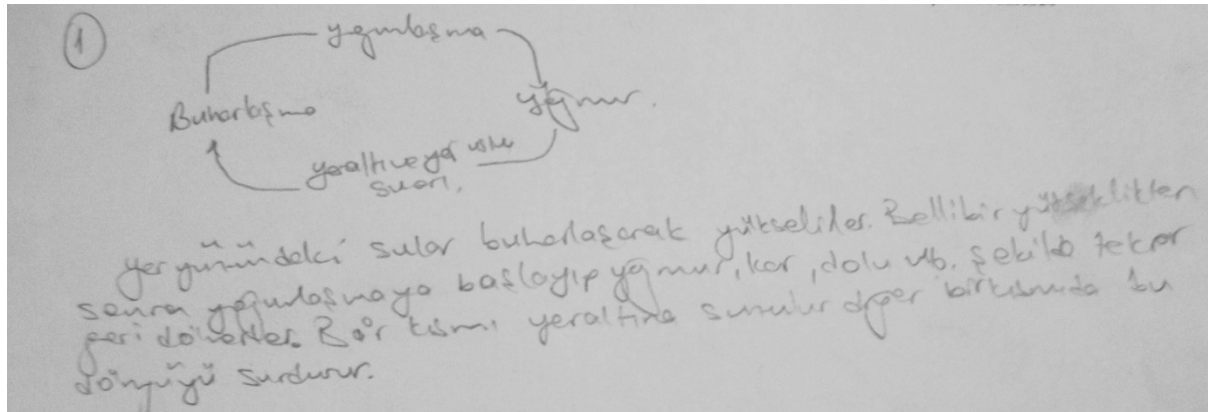 1
yoğunlaşma
Buharlaşma
yağmur.
yeraltı ve yer üstü
suları.
yer yüzündeki sular buharlaşarak yükselirler. Belli bir yükseklikten
sonra yoğunlaşmaya başlayıp yağmur, kar, dolu vb. şekilde tekrar
geri dönerler. Bir kısmı yeraltına sunulur diğer bir kısmıda bu
döngüyü surdurur.